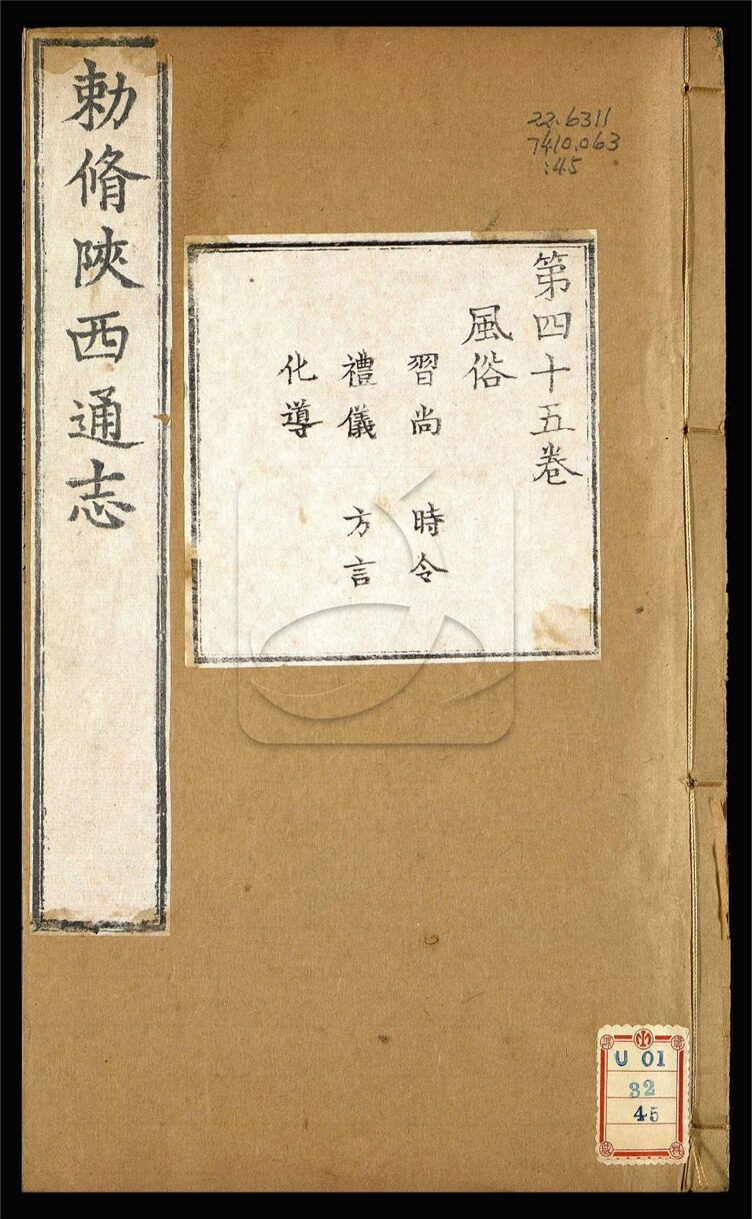 勅脩陝西通志
22.6311
7410.063
:45
第四十五卷
風俗
習尚 時令
禮儀 方言
化導
U 01
32
45